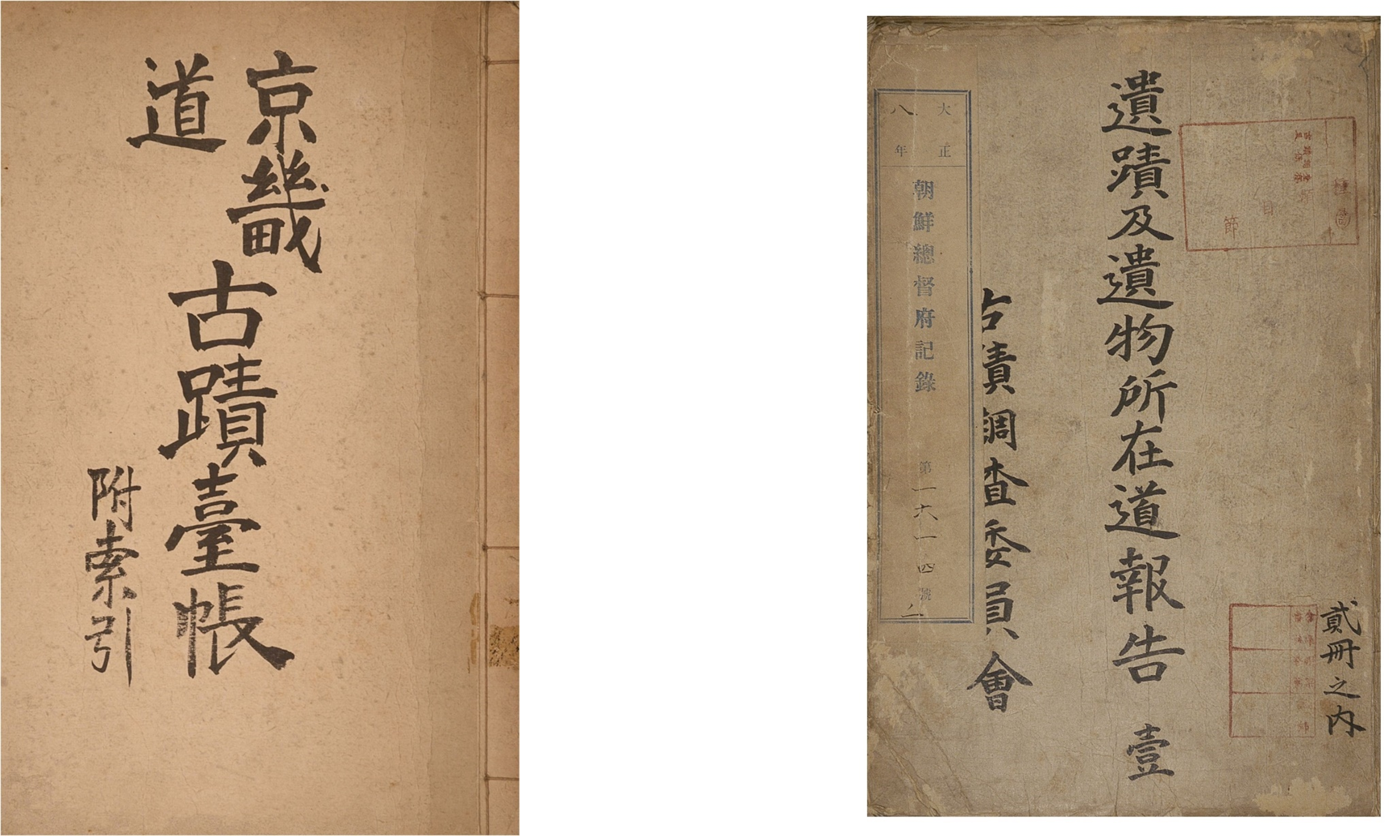 京畿
道
古蹟臺帳
附索引
貳冊之内
遺蹟及遺物所在道報告 壹
古蹟調査委員會
大正
八年
朝鮮總督府記錄
第一六一四號